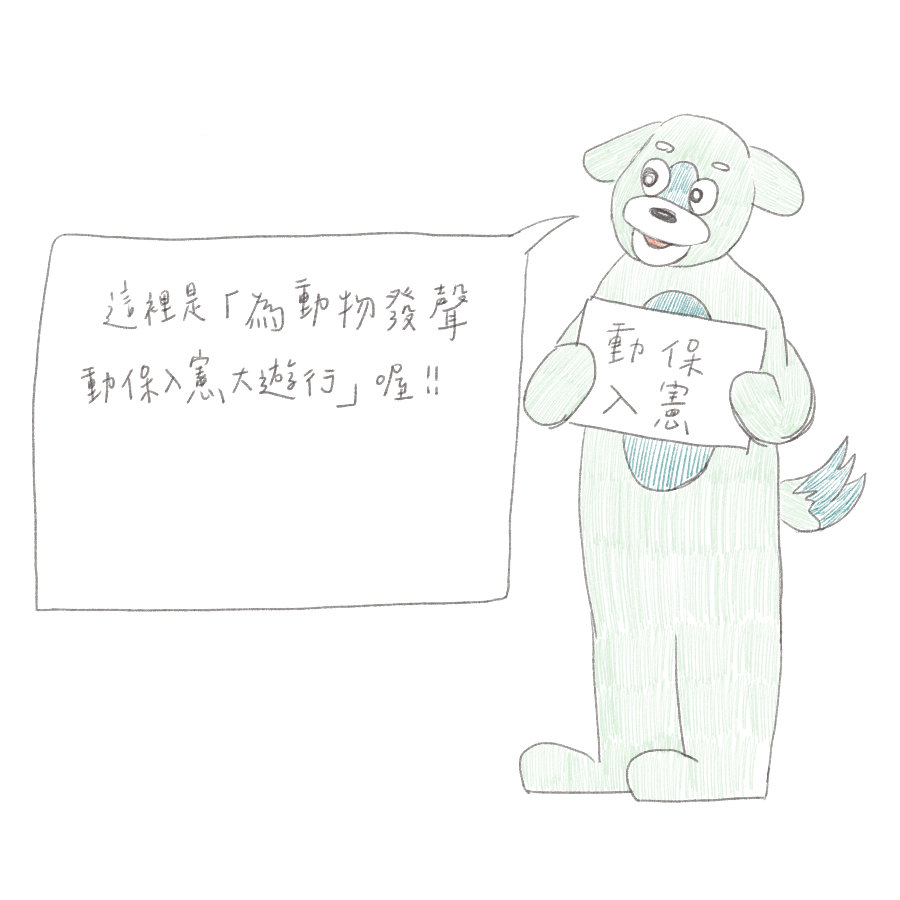 這裡是「為動物發聲
動保入憲大遊行」喔!!
動保
入憲